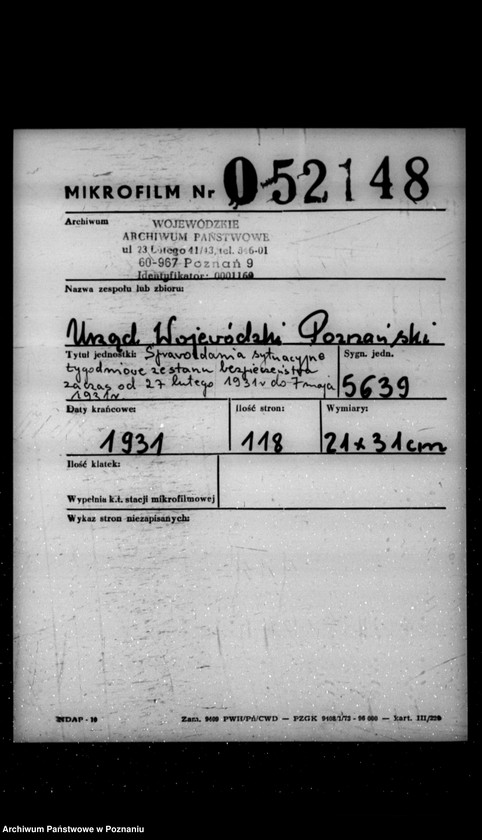 MIKROFILM Nr 052148
Archiwum
WOJEWÓDZKIE
ARCHIWUM PAŃSTWOWE
ul 23 Lutego 41/43, tel. 546-01
60-967 Poznań 9
Identyfikator: 0001160
Nazwa zespołu lub zbioru:
Urząd Wojewódzki Poznański
Tytuł jednostki: Sprawozdania sytuacyjne
tygodniowe ze stanu bezpieczeństwa
za czas od 27 lutego 1931 r do 7 maja
1931 r.
Sygn. jedn.
5639
Daty krańcowe:
1931
Ilość stron:
118
Wymiary:
21 x 31 cm
Ilość klatek:
Wypełnia k.t. stacji mikrofilmowej
Wykaz stron niezapisanych:
NDAP - 10
Zam. 9400 PWH/Pń/CWD — PZGK kart. III/220
Archiwum Państwowe w Poznaniu